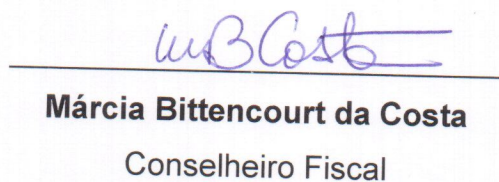 MB Costa
Márcia Bittencourt da Costa
Conselheiro Fiscal